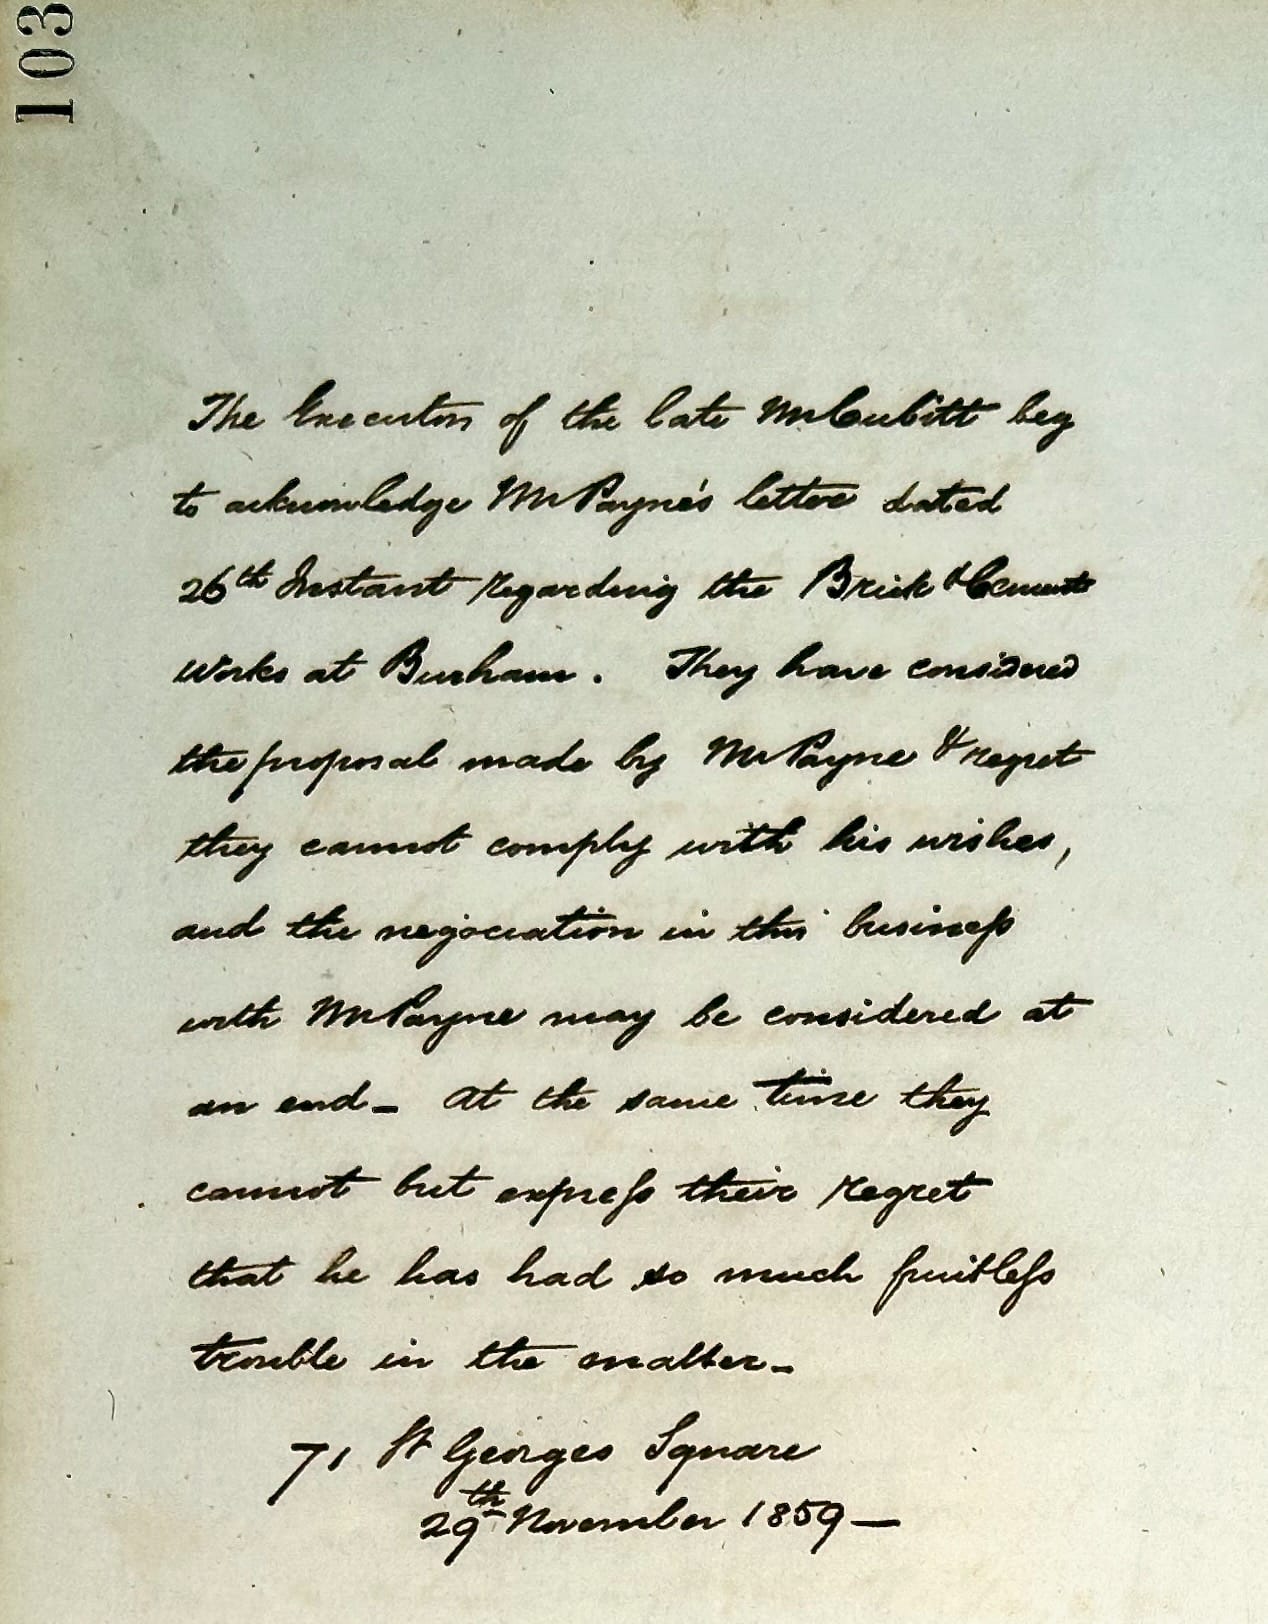 103
The Executors of the late Mr Cubitt beg
to acknowledge Mr Payne's letter dated
26th Instant regarding the Brick & Cement
Works at Burham. They have considered
the proposal made by Mr Payne & regret
they cannot comply with his wishes,
and the negociation in this business
with Mr Payne may be considered at
an end_ At the same time they
cannot but express their regret
that he has had so much fruitless
trouble in the matter_
71 St Georges Square
29th November 1859_